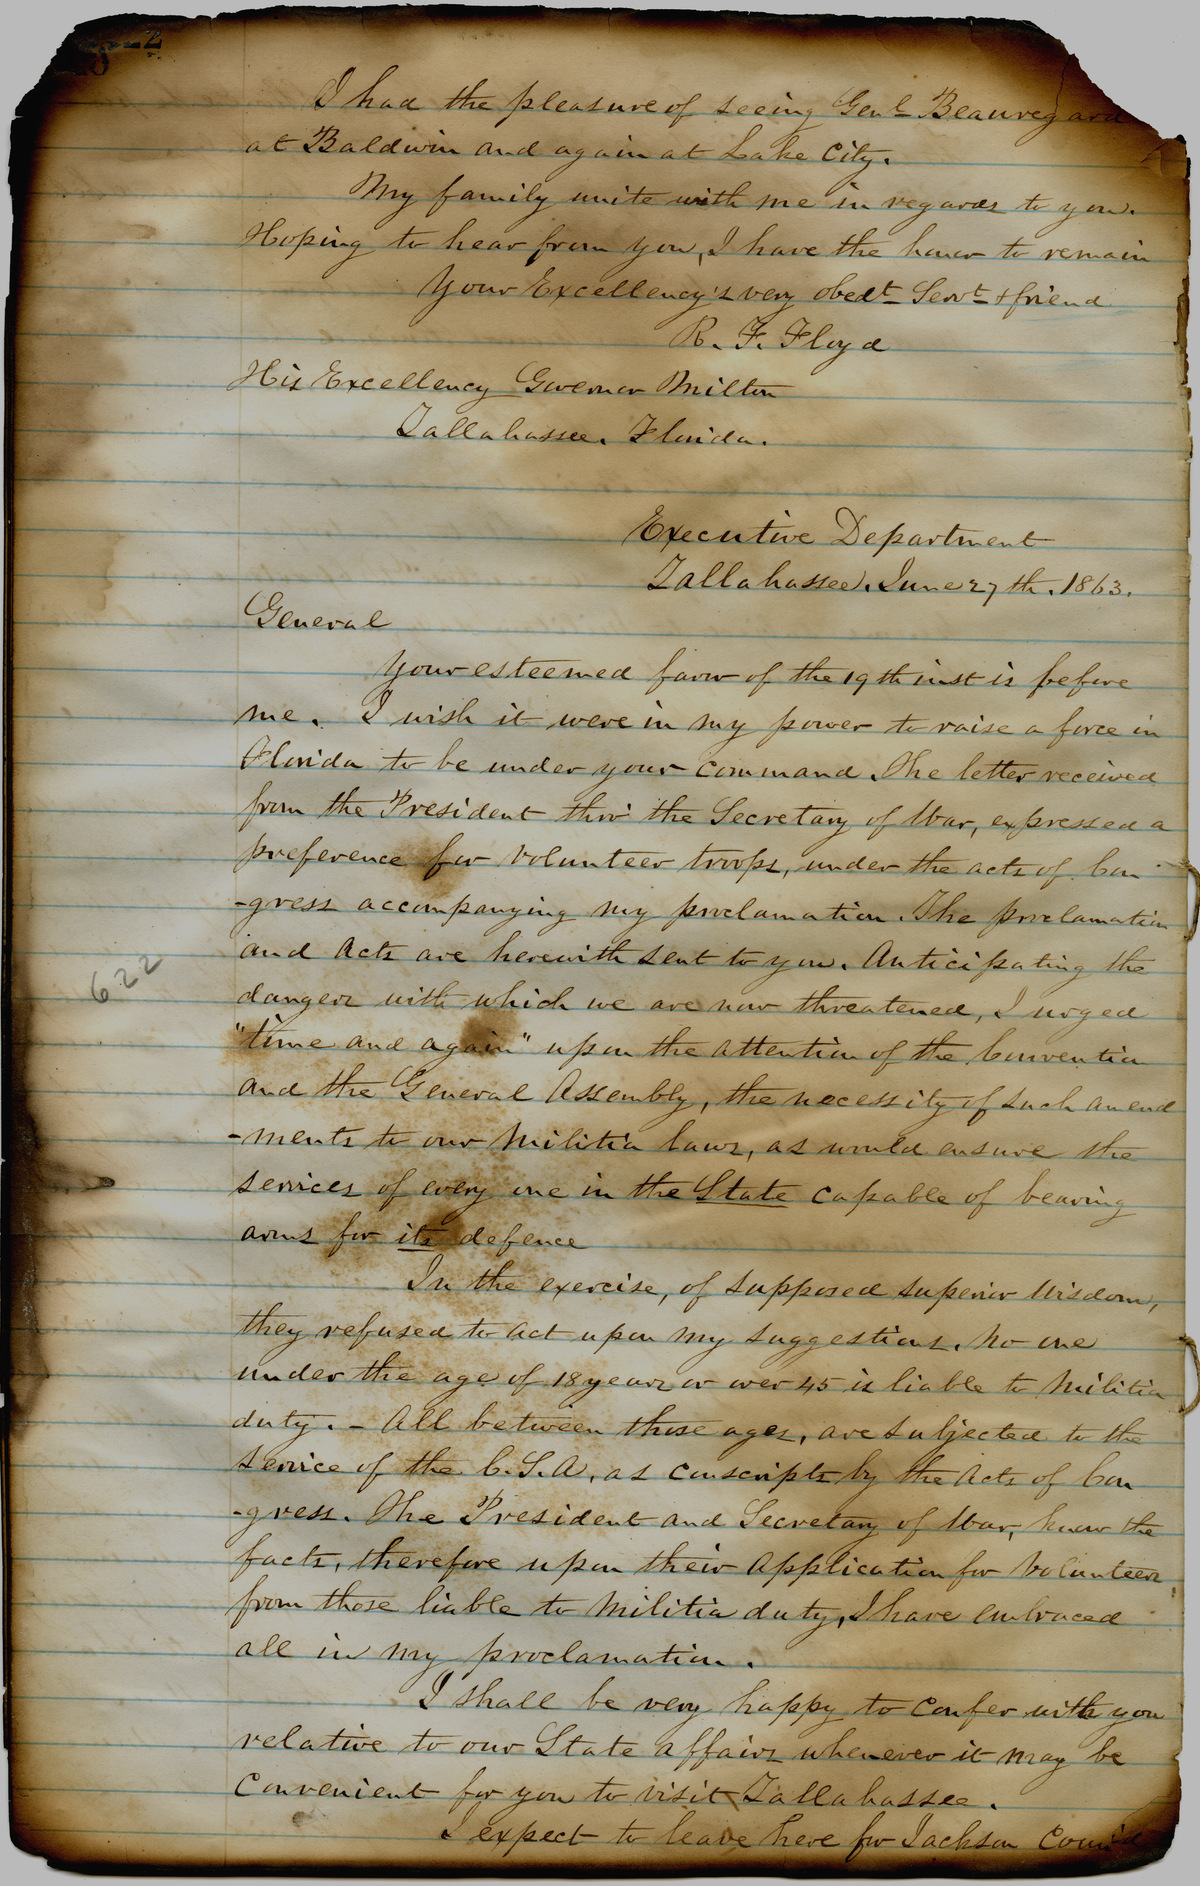 I had the pleasure of seeing Genl Beauregard
at Baldwin and again at Lake City.
My family unite with me in regards to you.
Hoping to hear from you, I have the honor to remain
Your Excellency's very obedt Servt & friend
R. F. Floyd
His Excellency Governor Milton
Tallahassee. Florida.
Executive Department
Tallahassee. June 27th. 1863.
General
Your esteemed favor of the 19th inst is before
me. I wish it were in my power to raise a force in
Florida to be under your command. The letter received
from the President thro' the Secretary of War, expressed a
preference for volunteer troops, under the acts of Con
-gress accompanying my proclamation. The proclamation
and Acts are herewith sent to you. Anticipating the
dangers with which we are now threatened, I urged
"time and again" upon the attention of the Convention
and the General Assembly, the necessity of such amend
-ments to our Militia laws, as would ensure the
services of every one in the State capable of bearing
arms for its defence
In the exercise, of supposed superior wisdom,
they refused to act upon my suggestions. No one
under the age of 18 years or over 45 is liable to Militia
duty. - All between those ages, are subjected to the
service of the C.S.A. as conscripts by the Acts of Con
-gress. The President and Secretary of War, know the
facts, therefore upon their application for Volunteers
from those liable to Militia duty, I have embraced
all in my proclamation.
I shall be very happy to confer with you
relative to our State affairs whenever it may be
convenient for you to visit Tallahassee.
I expect to leave here for Jackson
622